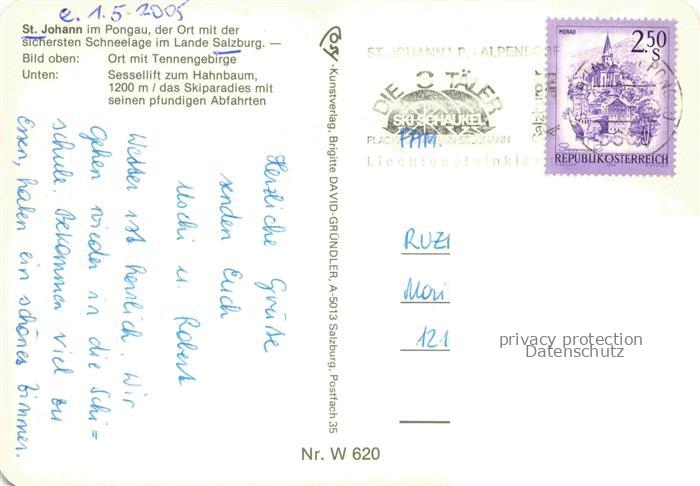 e. 1.5.2005
St. Johann im Pongau, der Ort mit der
sichersten Schneelage im Lande Salzburg. —
Bild oben: Ort mit Tennengebirge
Unten: Sessellift zum Hahnbaum,
1200 m / das Skiparadies mit
seinen pfundigen Abfahrten
Herzliche Grüße
senden Euch
Uschi u. Robert
Wetter ist herrlich. Wir
gehen wieder in die Schi=
schule. Bekommen viel zu
Essen, haben ein schönes Zimmer.
Cosy-Kunstverlag, Brigitte DAVID-GRÜNDLER, A-5013 Salzburg, Postfach 35
Nr. W 620
ST. JOHANN I. P. - ALPENDORF
DIE 3 TÄLER
SKI-SCHAUKEL
ST. JOHANN
Liechtensteinklamm
MURAU
2.50
S
REPUBLIK ÖSTERREICH
FAM.
RUZI
Mori
121
privacy protection
Datenschutz